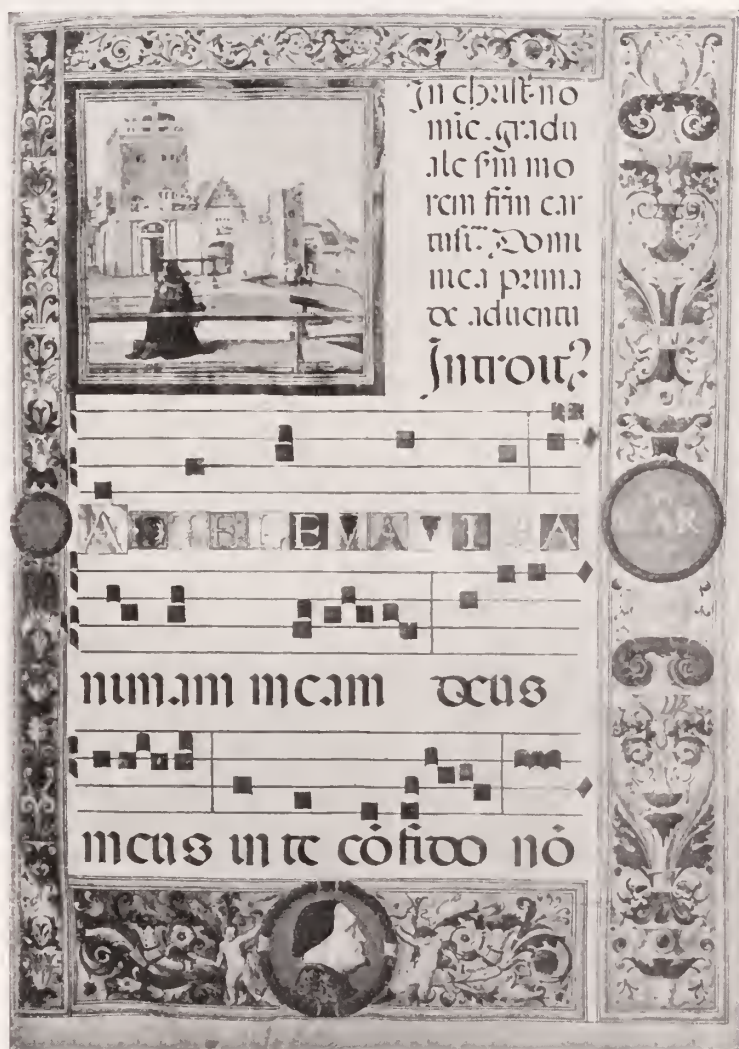 In christ. no
mīe. gradu
ale sm̄ mo
rem frm̄ car
tusi. Domi
nica prima
de aduentu
Introit
AD TE LEVAVI A
nimam meam deus
meus in te cōfido nō